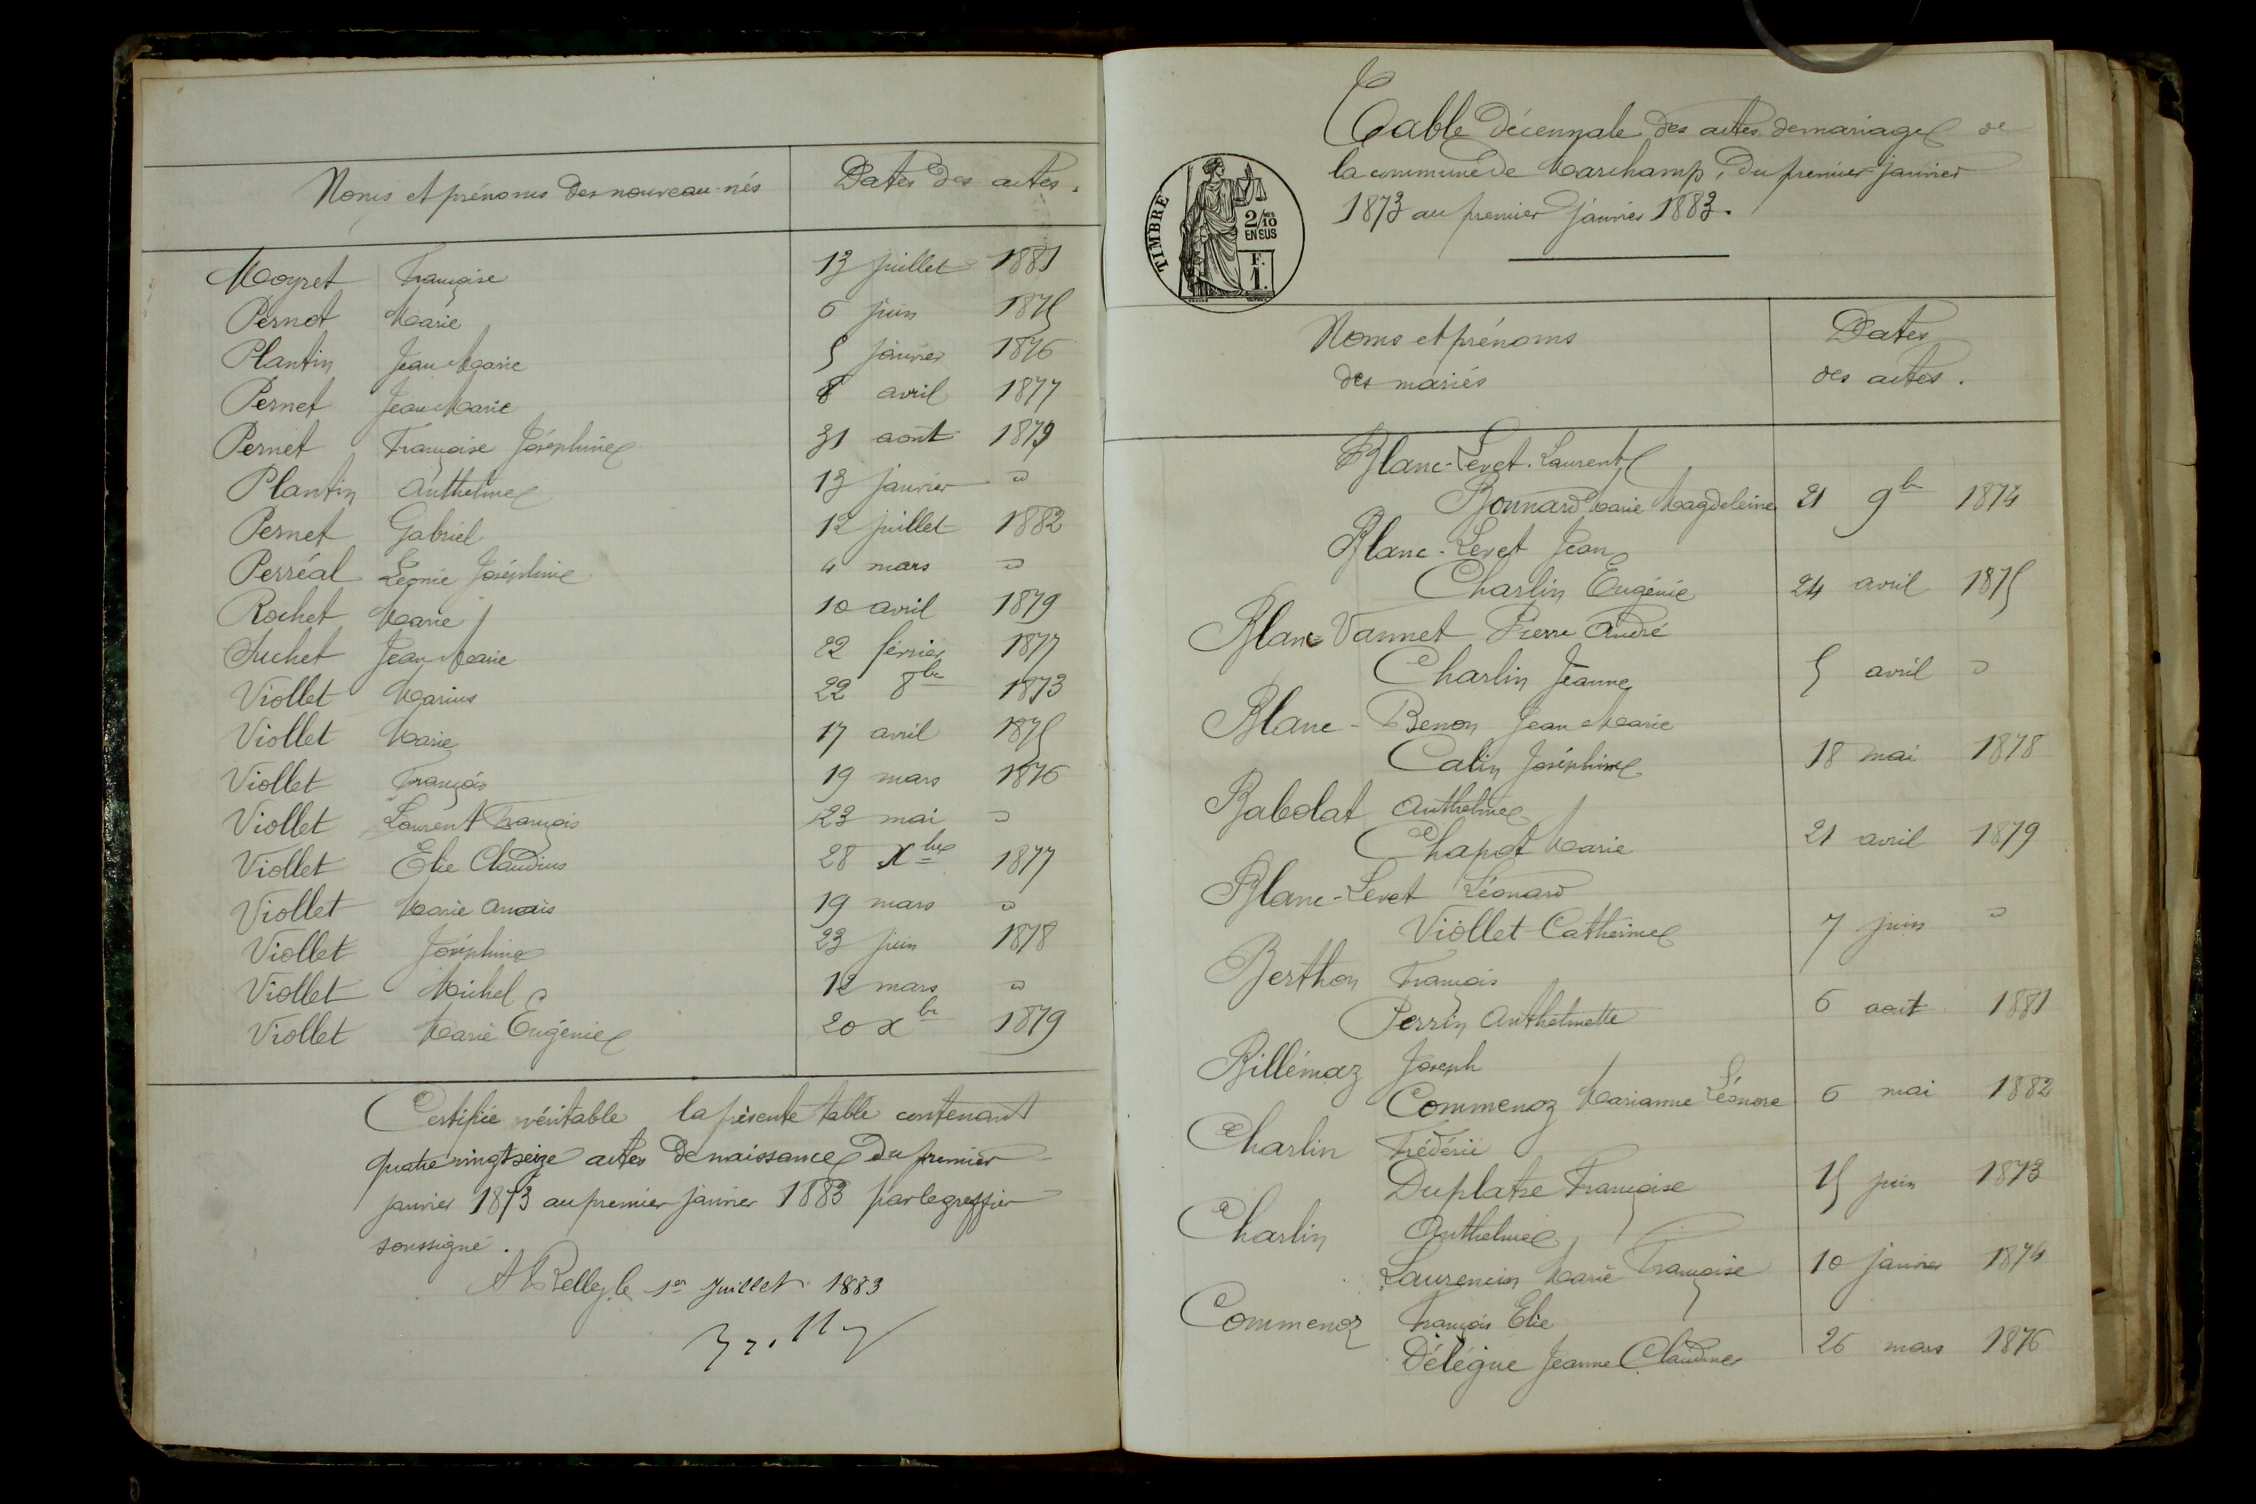 Noms et prénoms des nouveau-nés Dates des actes.
Moyret Françoise 13 juillet 1881
Pernet Marie 6 juin 1875
Plantin Jean Marie 5 janvier 1876
Pernet Jean Marie 8 avril 1877
Pernet Françoise Joséphine 31 août 1879
Plantin Anthelme 13 janvier "
Pernet Gabriel 12 juillet 1882
Perréal Léonie Joséphine 4 mars "
Rochet Marie 10 avril 1879
Suchet Jean Marie 22 février 1877
Viollet Marius 22 8bre 1873
Viollet Marie 17 avril 1875
Viollet François 19 mars 1876
Viollet Laurent François 23 mai "
Viollet Elie Claudius 28 Xbre 1877
Viollet Marie Anaïs 19 mars "
Viollet Joséphine 23 juin 1878
Viollet Michel 12 mars "
Viollet Marie Eugénie 20 Xbre 1879
Certifiée véritable la présente table contenant
quatre vingt seize actes de naissance du premier
janvier 1873 au premier janvier 1883 par le greffier
soussigné.
A Belley, le 1er Juillet 1883
Table décennale des actes de mariage de
la commune de Marchamp, du premier janvier
1873 au premier janvier 1883.
TIMBRE
2/10es
EN SUS
F.
1.
Noms et prénoms Dates
des mariés des actes.
Blanc-Levet Laurent
Bonnard Marie Magdeleine 21 9bre 1874
Blanc-Levet Jean
Charlin Eugénie 24 avril 1875
Blanc Vannet Pierre André
Charlin Jeanne 5 avril "
Blanc-Benon Jean Marie
Calin Joséphine 18 mai 1878
Babolat Anthelme
Chapot Marie 21 avril 1879
Blanc-Levet Léonard
Viollet Catherine 7 juin "
Berthon François
Perrin Anthelmette 6 août 1881
Billémaz Joseph
Commenoz Marianne Léonore 6 mai 1882
Charlin Frédéric
Duplatre Françoise 15 juin 1873
Charlin Anthelme
Laurencin Marie Françoise 10 janvier 1874
Commenoz François Elie
Délégue Jeanne Claudine 26 mars 1876